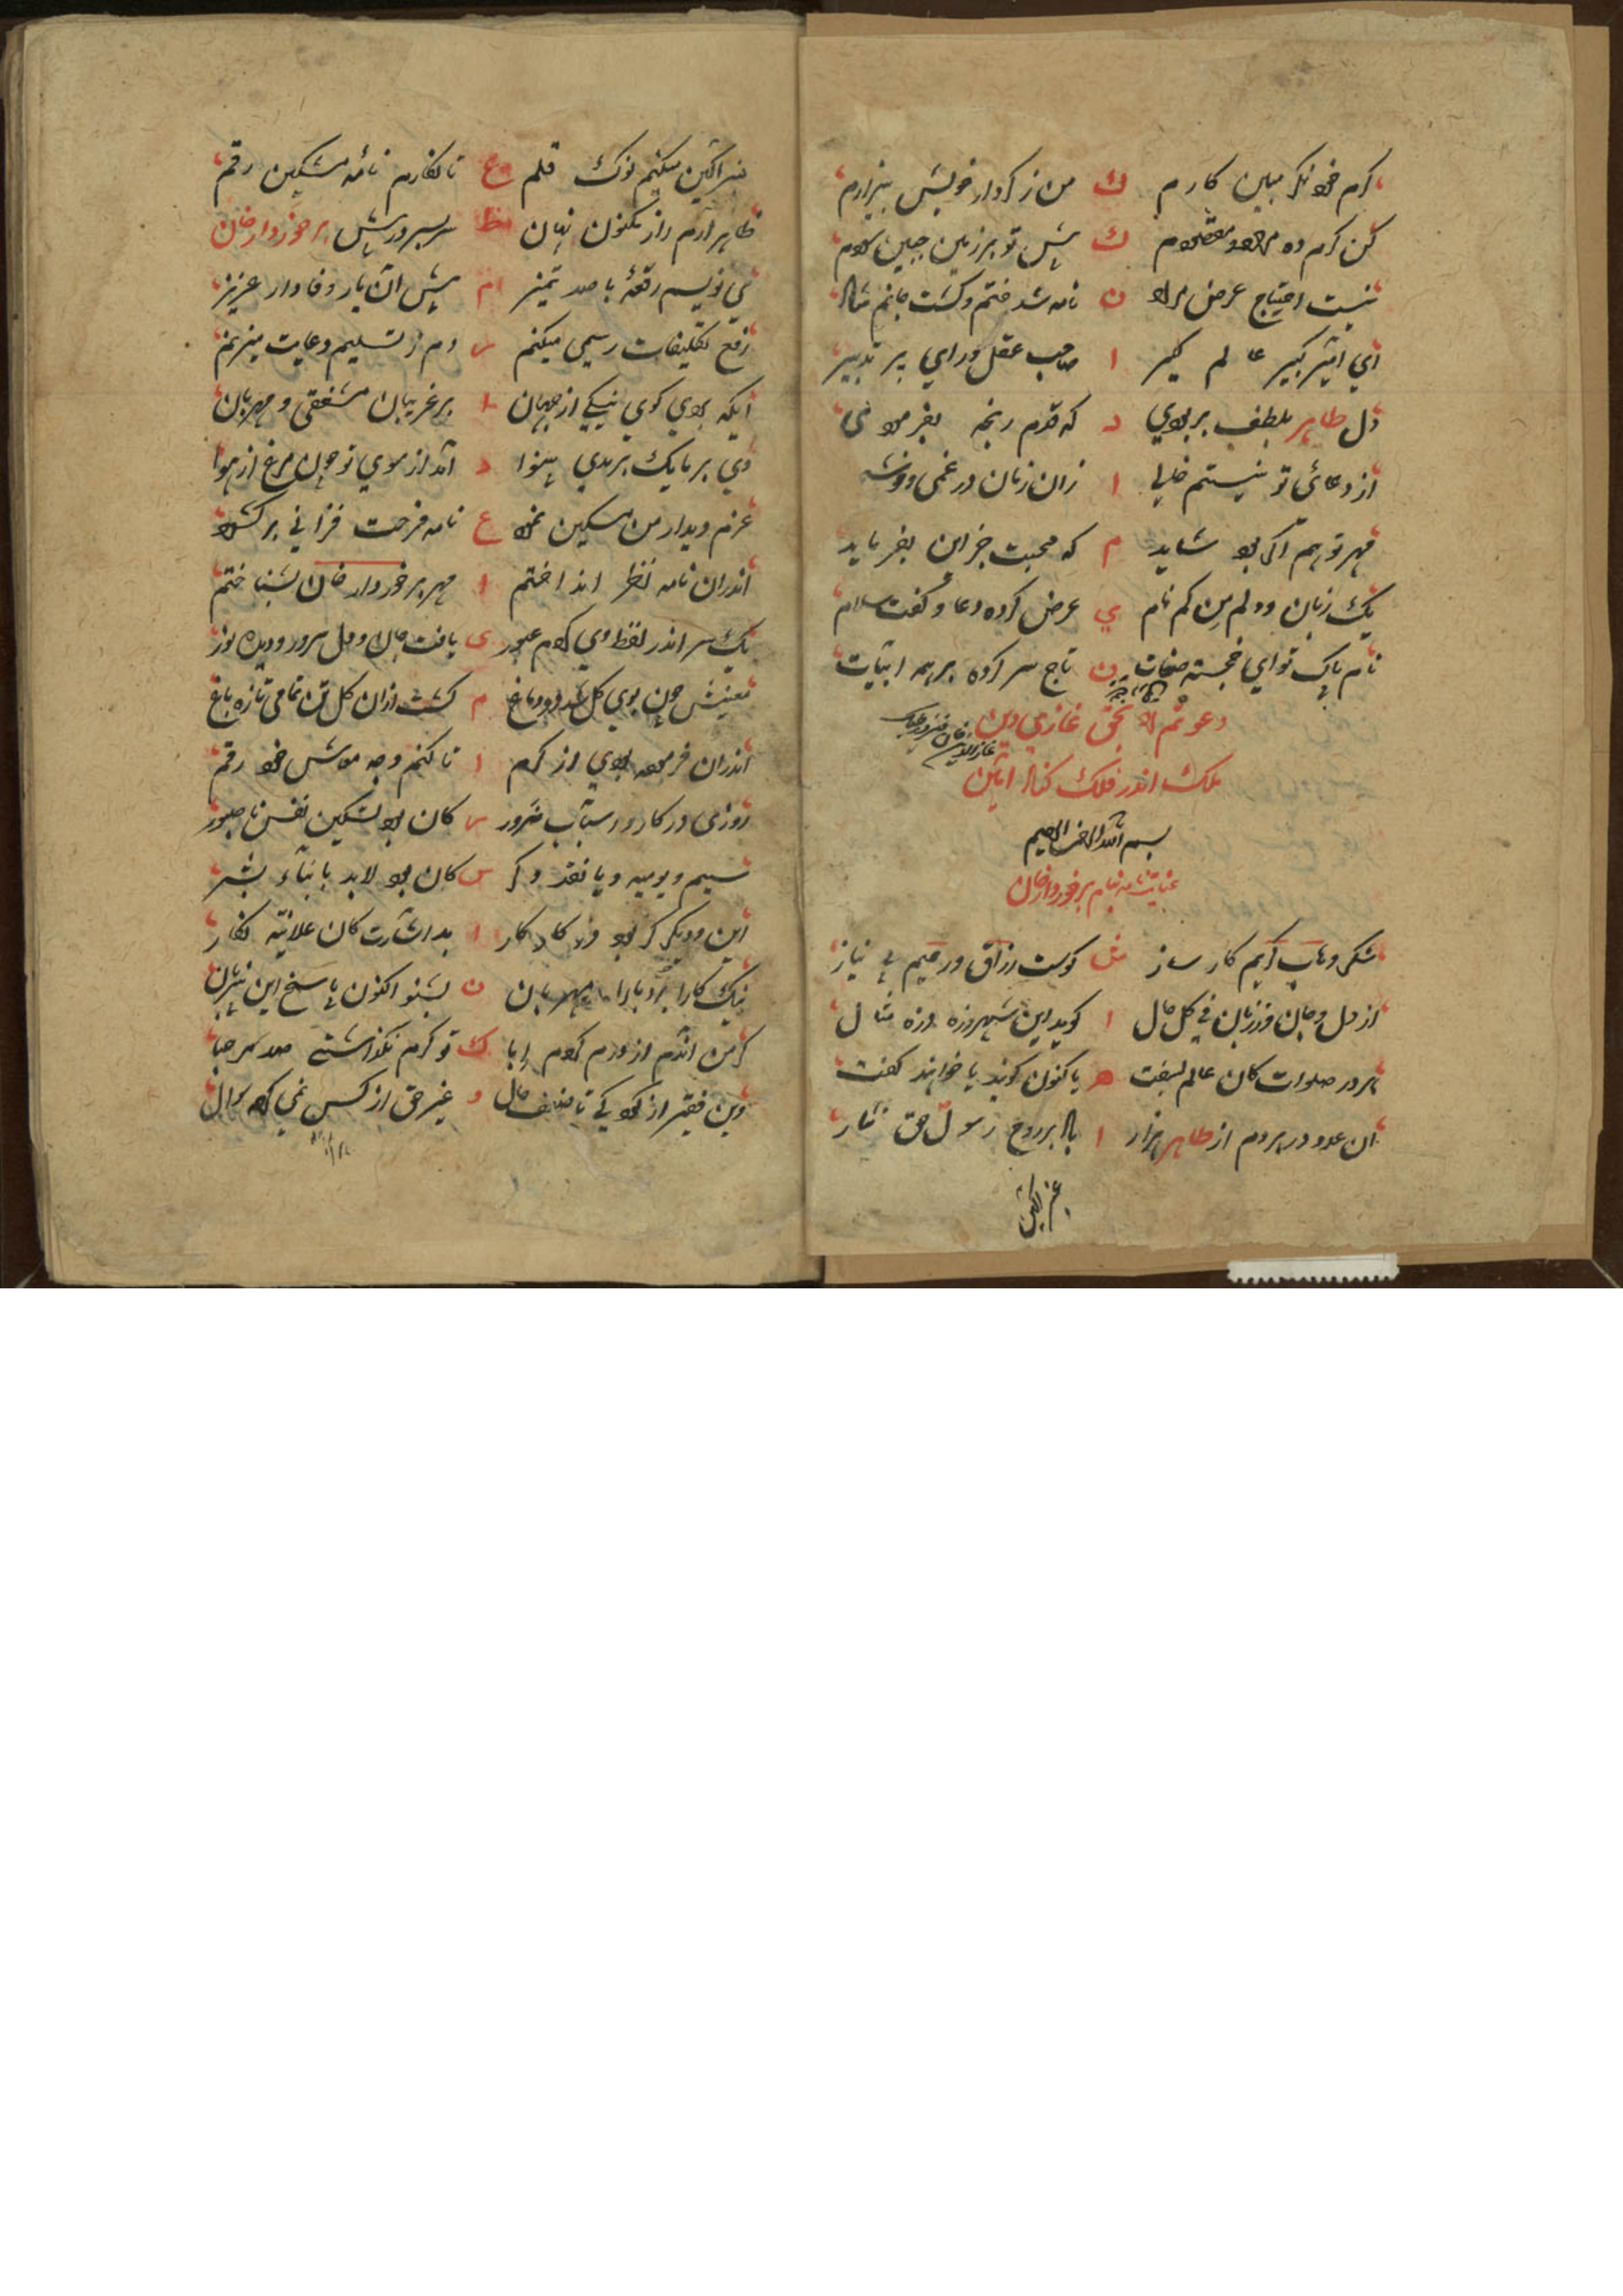 کرم خود نکر مبین کارم ک من ز کردار خویش بیزارم
کن کرم ده مراد و مقصودم ک پیش تو بر زمین جبین سودم
نیست احتیاج عرض مراد ن نامه شد ختم و کشت جانم شاد
ای امیر کبیر عالم کیر ا صاحب عقل و رای پر تدبیر
دل طاهر بلطف بربودی د که قدم رنجه بفرمودی
از دعائی تو نیستم خالی ا زان زمان در غمی
مهر تو هم اکر بود شاید م که محبت جز این بفرماید
یک زبان و دلم من کم نام ی عرض کرده دعا و کفت سلام
نام پاک تو ای خجسته صفات ن تاج سر کرده بر همه ابیات
دعوتم را بحق غازی دین
ملک اندر فلک کناد امین
بسم الله الرحمن الرحیم
عنایتنامه بنام برخوردار خان
شکر وهاب کریم کار ساز ش کوست رزاق و رحیم بی نیاز
از دل و جان و زبان فی کل حال ا کوید این
هم درود صلوات کان عالم بسفت ه یا کنون کویند یا خواهند کفت
ان عدد در هر دم از طاهر هزار ا باد بر روح رسول حق نثار
عنبر اکین
عنبر اکین میکنم نوک قلم ع تا نکارم نامهٔ مشکین رقم
ظاهر ارم راز مکنون نهان ظ سر بسر در پیش برخوردار خان
می نویسم رقعهٔ با صد تمیز م پیش ان یار وفادار عزیز
رفع تکلیفات رسمی میکنم ر دم ز تسلیم و دعایت میزنم
ایکه بردی کوی نیکی از جهان ا بر غریبان مشفقی و مهربان
دی بر یک بریدی بینوا د امد از سوی تو چون مرغ از هوا
عزم دیدار من مسکین نمود ع نامه فرحت فزائی بر کشود
اندران نامه نظر انداختم ا مهر برخوردار خان بشناختم
یک سر اندر لفظ وی کردم عبور ی یافت جان و دل سرور و دیده نور
معنیش چون بوی کل شد در دماغ م کشت ازان کل تن تمامی تازه باغ
اندران فرموده بودی از کرم ا تا کنم وجه معاش خود رقم
روزی در کار و اسباب ضرور ر کان بود تسکین نفس ناصبور
سیم و یومیه و یا نقد دکر س کان بود لابد بابناء بشر
این و دیکر کر بود در کار کار ا بد اشارت کان علانیه نکار
نیک کارا بردبارا مهربان ن بشنو اکنون پاسخ این
کر من اندم از درم کردم ابا ک تو کرم نکذاشتی صد مرحبا
وین فقیر از کودکی تا ضعف حال و غیر حق از کس نمی کرده سوال